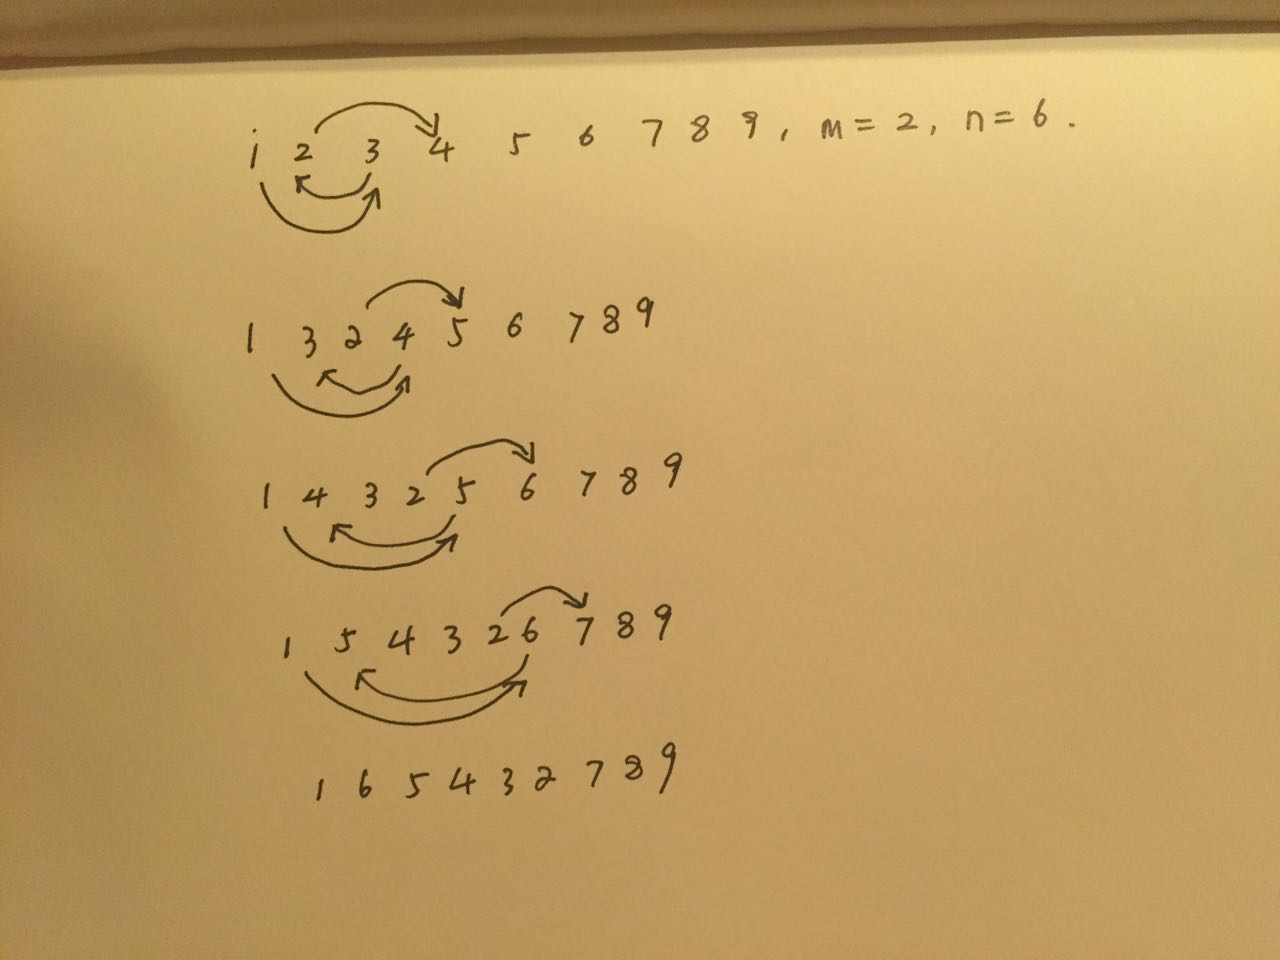 1 2 3 4 5 6 7 8 9, m = 2, n = 6.
1 3 2 4 5 6 7 8 9
1 4 3 2 5 6 7 8 9
1 5 4 3 2 6 7 8 9
1 6 5 4 3 2 7 8 9